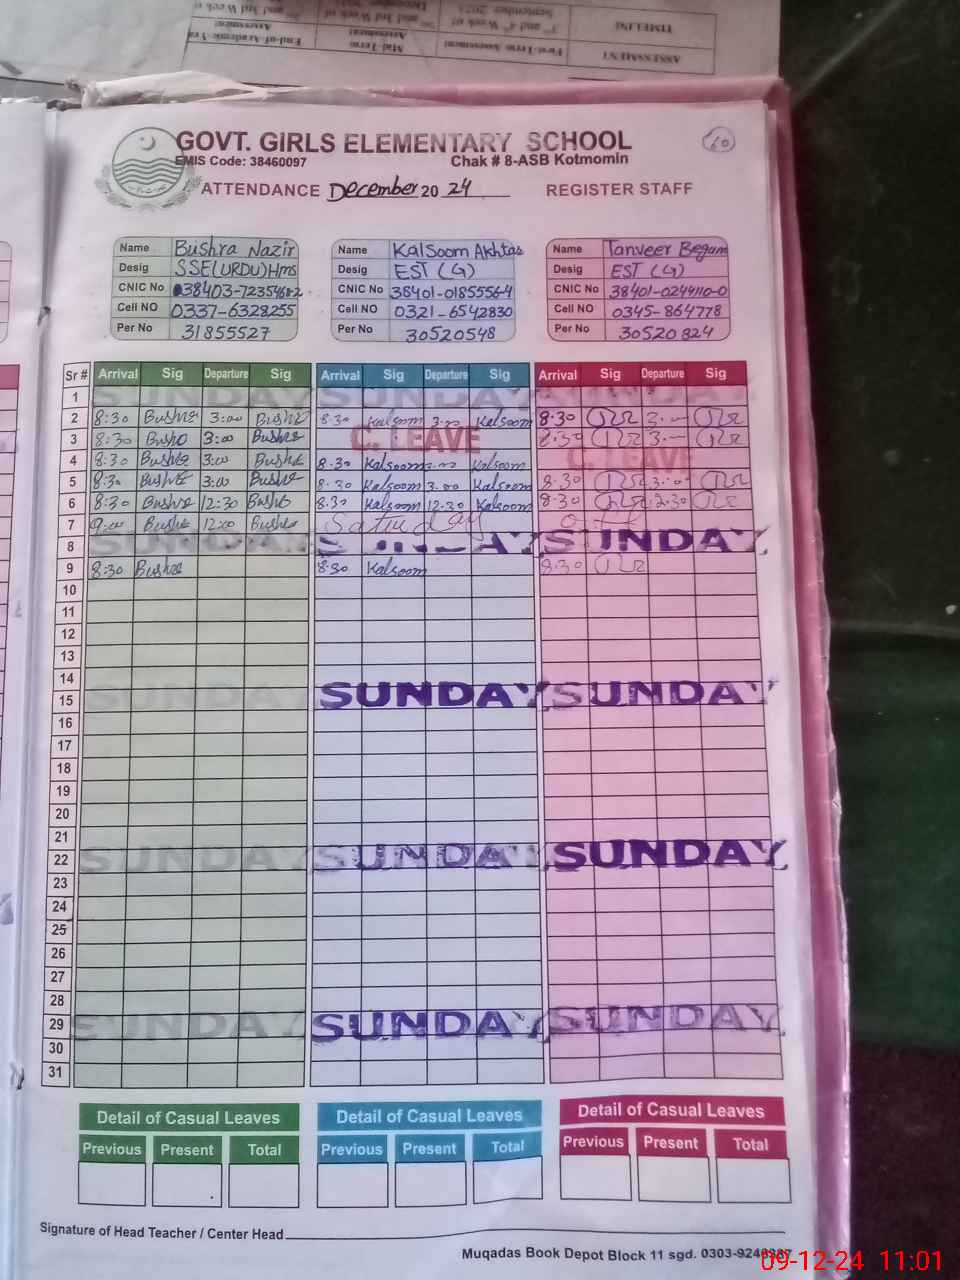 ASSESSMENT First-Term Assessment Mid-Term Assessment
TIMELINE
GOVT. GIRLS ELEMENTARY SCHOOL
60
EMIS Code: 38460097 Chak # 8-ASB Kotmomin
ATTENDANCE December 20 24 REGISTER STAFF
Name Bushra Nazir Name Kalsoom Akhtar Name Tanveer Begum
Desig SSE(URDU)Hms Desig EST (G) Desig EST (G)
CNIC No CNIC No CNIC No
Cell NO 0337-6328255 Cell NO 0321-6542830 Cell NO 0345-864778
Per No 31855527 Per No 30520548 Per No 30520824
Sr # Arrival Sig Departure Sig Arrival Sig Departure Sig Arrival Sig Departure Sig
1 SUNDAY SUNDAY
2 8:30 Bushra 3:00 Bushra 8:30 Kalsoom 3:00 Kalsoom 8:30
3 8:30 Bushra 3:00 Bushra C. LEAVE 8:30
4 8:30 Bushra 3:00 Bushra 8:30 Kalsoom 3:00 Kalsoom C. LEAVE
5 8:30 Bushra 3:00 Bushra 8:30 Kalsoom 3:00 Kalsoom 8:30 3:00
6 8:30 Bushra 12:30 Bushra 8:30 Kalsoom 12:30 Kalsoom 8:30 12:30
7 9:00 Bushra 12:00 Bushra Saturday off
8 SUNDAY SUNDAY SUNDAY
9 8:30 Bushra 8:30 Kalsoom 8:30
10
11
12
13
14
15 SUNDAY SUNDAY SUNDAY
16
17
18
19
20
21
22 SUNDAY SUNDAY SUNDAY
23
24
25
26
27
28
29 SUNDAY SUNDAY SUNDAY
30
31
Detail of Casual Leaves Detail of Casual Leaves Detail of Casual Leaves
Previous Present Total Previous Present Total Previous Present Total
Signature of Head Teacher / Center Head
Muqadas Book Depot Block 11 sgd.
09-12-24 11:01